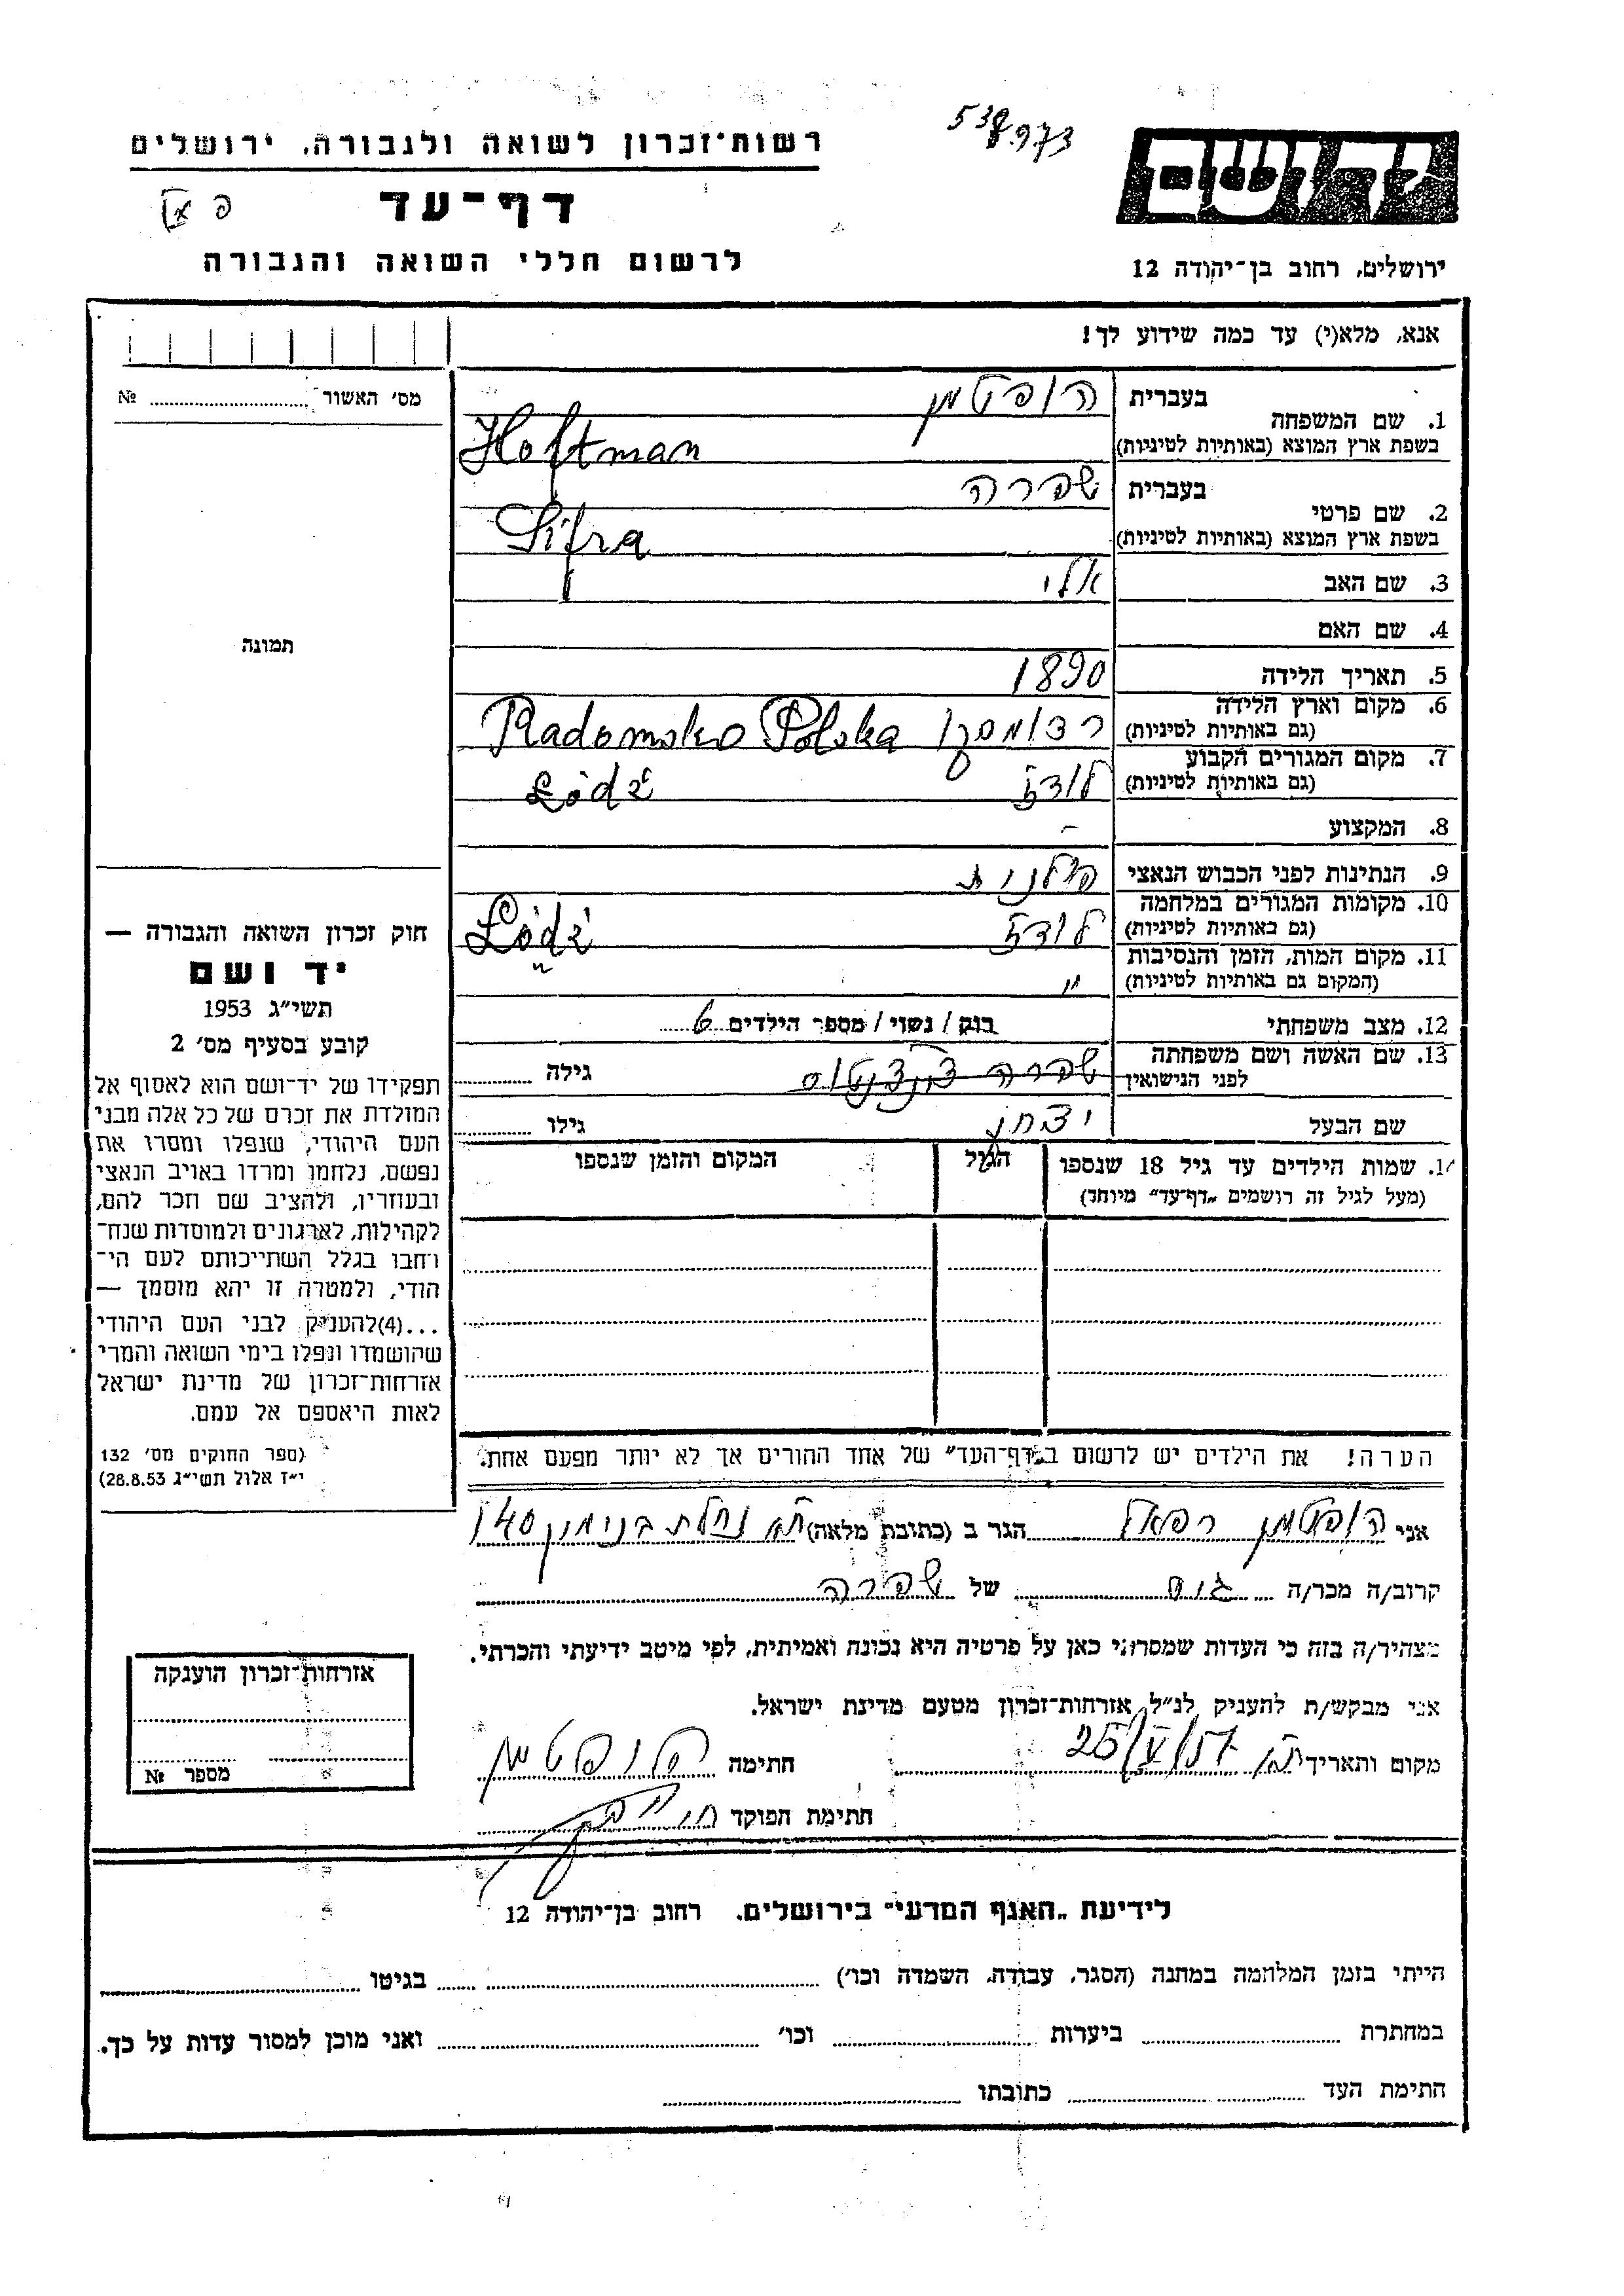 רשות־זכרון לשואה ולגבורה, ירושלים
דף־עד
לרשום חללי השואה והגבורה
יד ושם
ירושלים, רחוב בן־יהודה 12
אנא, מלא(י) עד כמה שידוע לך!
מס׳ האשור № 
בעברית הופטמן
1. שם המשפחה
בשפת ארץ המוצא (באותיות לטיניות) Hoftman
בעברית שפרה
2. שם פרטי
בשפת ארץ המוצא (באותיות לטיניות) Sifra
3. שם האב אלי
4. שם האם
5. תאריך הלידה 1890
6. מקום וארץ הלידה
(גם באותיות לטיניות) רדומסקו Radomsko Polska
7. מקום המגורים הקבוע
(גם באותיות לטיניות) לודז Łódź
8. המקצוע -
9. הנתינות לפני הכבוש הנאצי פולנית
10. מקומות המגורים במלחמה
(גם באותיות לטיניות) לודז Łódź
11. מקום המות, הזמן והנסיבות
(המקום גם באותיות לטיניות) " "
12. מצב משפחתי רווק / נשוי / מספר הילדים 6
13. שם האשה ושם משפחתה
לפני הנישואין שפרה גילה
שם הבעל יצחק גילו
14. שמות הילדים עד גיל 18 שנספו הגיל המקום והזמן שנספו
(מעל לגיל זה רושמים „דף־עד" מיוחד)
תמונה
חוק זכרון השואה והגבורה —
יד ושם
תשי״ג 1953
קובע בסעיף מס׳ 2
תפקידו של יד־ושם הוא לאסוף אל
המולדת את זכרם של כל אלה מבני
העם היהודי, שנפלו ומסרו את
נפשם, נלחמו ומרדו באויב הנאצי
ובעוזריו, ולהציב שם וזכר להם,
לקהילות, לארגונים ולמוסדות שנח־
רחבו בגלל השתייכותם לעם הי־
הודי, ולמטרה זו יהא מוסמך —
...(4)להעניק לבני העם היהודי
שהושמדו ונפלו בימי השואה והמרי
אזרחות־זכרון של מדינת ישראל
לאות היאספם אל עמם.
(ספר החוקים מס׳ 132
י״ז אלול תשי״ג 28.8.53)
הערה! את הילדים יש לרשום ב„דף־העד" של אחד ההורים אך לא יותר מפעם אחת.
אני הופטמן רפאל הגר ב (כתובת מלאה) ת״א נחלת בנימין 140
קרוב/ה מכר/ה גיס של שפרה
מצהיר/ה בזה כי העדות שמסרתי כאן על פרטיה היא נכונה ואמיתית, לפי מיטב ידיעתי והכרתי.
אני מבקש/ת להעניק לנ״ל אזרחות־זכרון מטעם מדינת ישראל.
מקום ותאריך ת״א 25/V/57 חתימה הופטמן
חתימת הפוקד
אזרחות־זכרון הוענקה
מספר №
לידיעת „האגף המדעי" בירושלים, רחוב בן־יהודה 12
הייתי בזמן המלחמה במחנה (הסגר, עבודה, השמדה וכו׳) בגיטו
במחתרת ביערות וכו׳ ואני מוכן למסור עדות על כך.
חתימת העד כתובתו